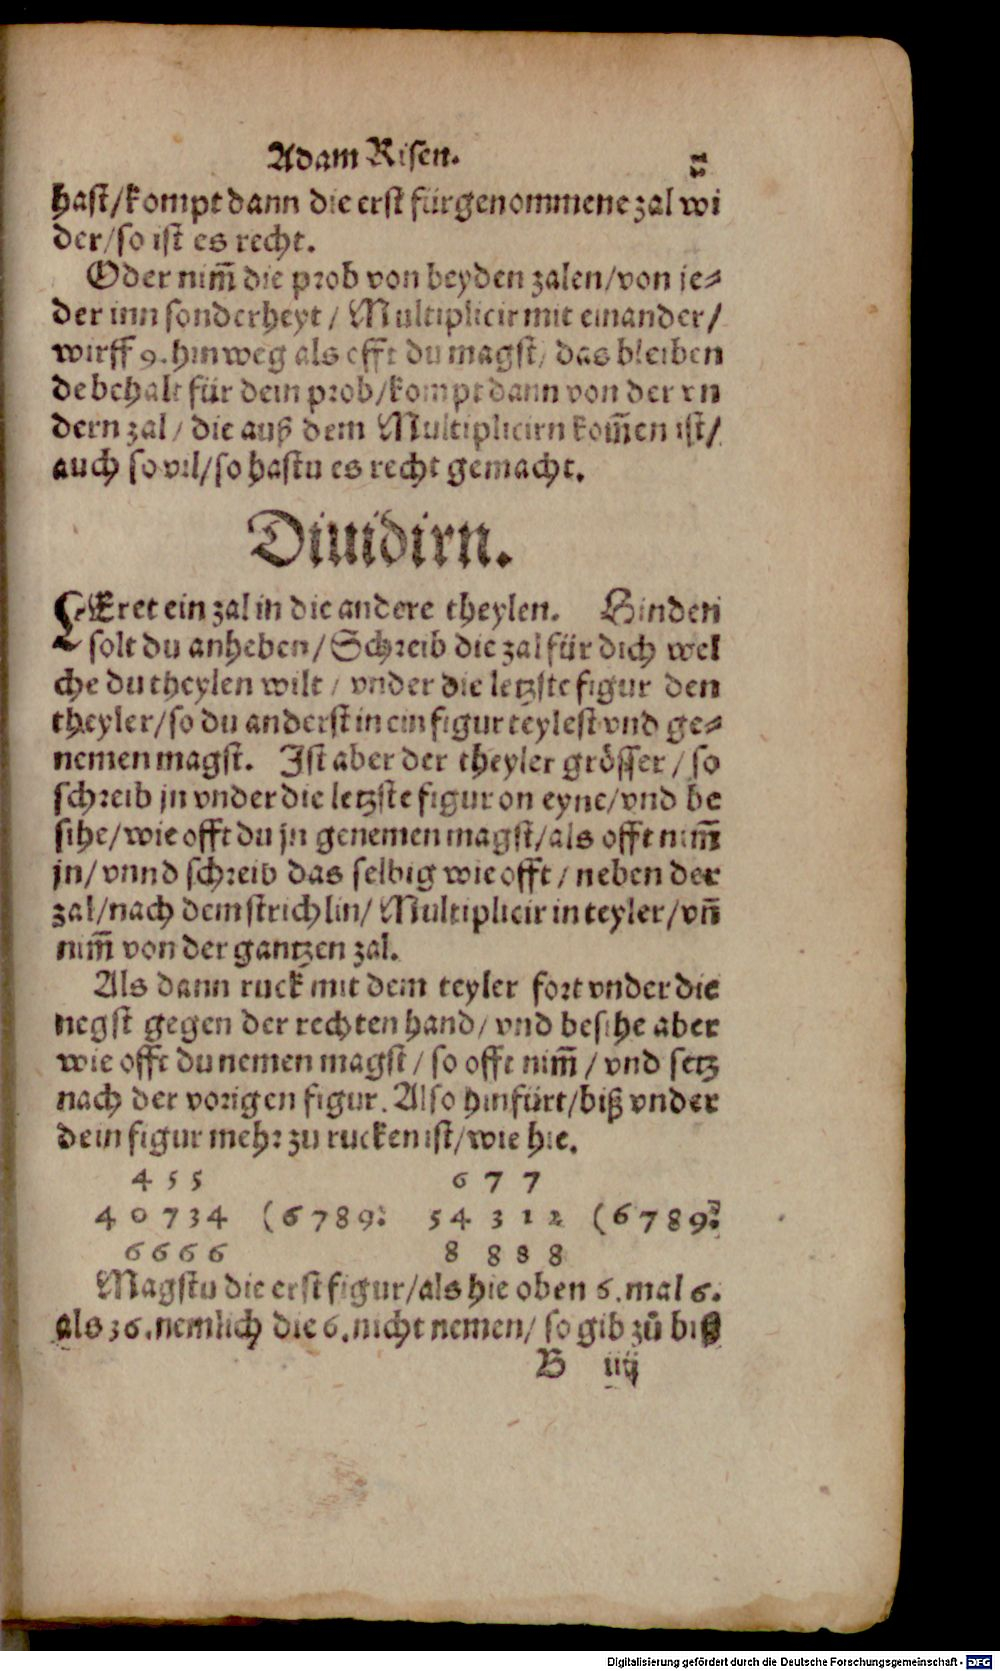 Adam Risen.
hast/kompt dann die erst fürgenommene zal wi
der/so ist es recht.
Oder nim̄ die prob von beyden zalen/von je⸗
der inn sonderheyt / Multiplicir mit einander/
wirff 9. hinweg als offt du magst/ das bleiben
de behalt für dein prob/kompt dann von der en
dern zal / die auß dem Multiplicirn kom̄en ist/
auch so vil/so hastu es recht gemacht.
Diuidirn.
LEret ein zal in die andere theylen. Hinden
solt du anheben / Schreib die zal für dich wel
che du theylen wilt / vnder die letzste figur den
theyler/so du anderst in ein figur teylest vnd ge⸗
nemen magst. Ist aber der theyler grösser / so
schreib jn vnder die letzste figur on eyne/vnd be
sihe/wie offt du jn genemen magst/als offt nim̄
jn/ vnnd schreib das selbig wie offt / neben der
zal/nach dem strichlin/ Multiplicir in teyler/vn̄
nim̄ von der gantzen zal.
Als dann ruck mit dem teyler fort vnder die
negst gegen der rechten hand/ vnd besihe aber
wie offt du nemen magst / so offt nim̄ / vnd setz
nach der vorigen figur. Also hinfürt/biß vnder
dein figur mehr zu rucken ist/wie hie.
4 5 5 6 7 7
4 0 7 3 4 (6 7 8 9: 5 4 3 1 2 (6 7 8 9:
6 6 6 6 8 8 8 8
Magstu die erst figur/als hie oben 6. mal 6.
als 36. nemlich die 6. nicht nemen/ so gib zů biß
B iiij
Digitalisierung gefördert durch die Deutsche Forschungsgemeinschaft - DFG